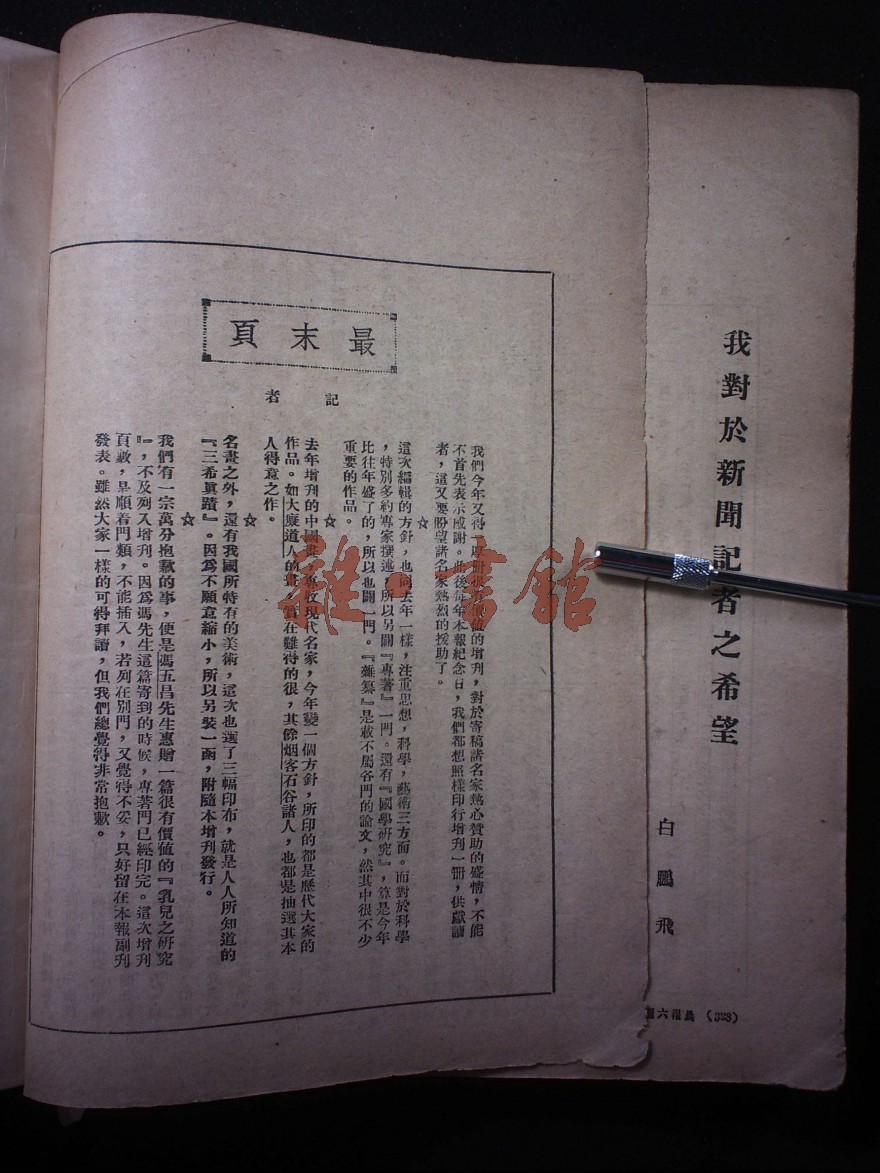 我對於新聞記者之希望
白鵬飛
晨報六
最末頁
記者
我們今年又得一厚冊很有價值的增刊，對於寄稿諸名家熱心贊助的盛情，不能
不首先表示感謝。此後每年本報紀念日，我們都想照樣印行增刊一冊，供獻讀
者，這又要盼望諸名家熱烈的援助了。
☆
這次編輯的方針，也同去年一樣，注重思想，科學，藝術三方面。而對於科學
，特別多約專家撰述，所以另闢『專著』一門。還有『國學研究』，算是今年
比往年盛了的，所以也闢一門。『雜纂』是載不屬各門的論文，然其中很不少
重要的作品。
☆
去年增刊的中國畫，專收現代名家，今年變一個方針，所印的都是歷代大家的
作品。如大癡道人的畫，實在難得的很，其餘烟客石谷諸人，也都是抽選其本
人得意之作。
☆
名畫之外，還有我國所特有的美術，這次也選了三幅印布，就是人人所知道的
『三希眞蹟』。因爲不願意縮小，所以另裝一函，附隨本增刊發行。
☆
我們有一宗萬分抱歉的事，便是馮五昌先生惠贈一篇很有價値的『乳兒之研究
』，不及列入增刊。因爲馮先生這篇寄到的時候，專著門已經印完。這次增刊
頁數，是順着門類，不能插入，若列在別門，又覺得不妥，只好留在本報副刊
發表。雖然大家一樣的可得拜讀，但我們總覺得非常抱歉。
雜·書館